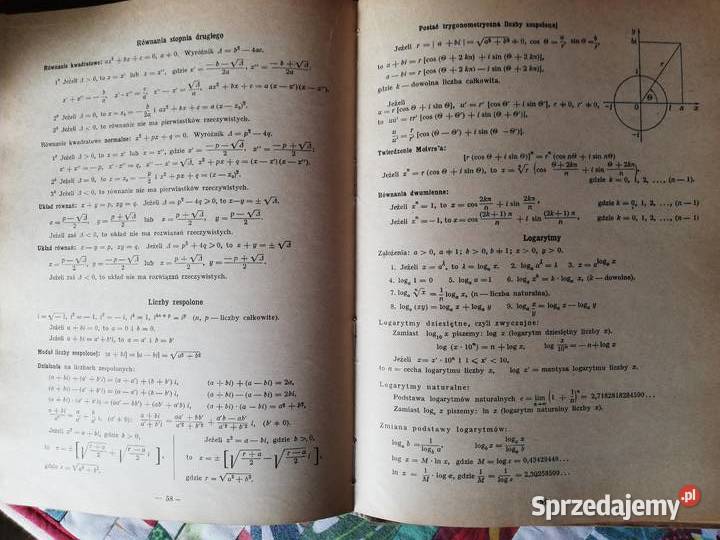 Równania stopnia drugiego
Równanie kwadratowe: ax² + bx + c = 0, a ≠ 0. Wyróżnik Δ = b² − 4ac.
1° Jeżeli Δ > 0, to x = x' lub x = x'', gdzie x' = (−b − √Δ)/2a, x'' = (−b + √Δ)/2a
x' + x'' = −b/a, x'·x'' = c/a, x'' − x' = √Δ/a, ax² + bx + c = a (x − x')(x − x'').
2° Jeżeli Δ = 0, to x = x₀ = −b/2a i ax² + bx + c = a(x − x₀)².
3° Jeżeli Δ < 0, to równanie nie ma pierwiastków rzeczywistych.
Równanie kwadratowe normalne: x² + px + q = 0. Wyróżnik Δ = p² − 4q.
1° Jeżeli Δ > 0, to x = x' lub x = x'', gdzie x' = (−p − √Δ)/2, x'' = (−p + √Δ)/2,
x' + x'' = −p, x'·x'' = q, x'' − x' = √Δ, x² + px + q = (x − x')(x − x'').
2° Jeżeli Δ = 0, to x = x₀ = −p/2 i x² + px + q = (x − x₀)².
3° Jeżeli Δ < 0, to równanie nie ma pierwiastków rzeczywistych.
Układ równań: x + y = p, xy = q. Jeżeli Δ = p² − 4q ≥ 0, to x − y = ± √Δ
x = (p − √Δ)/2, y = (p + √Δ)/2 lub x = (p + √Δ)/2, y = (p − √Δ)/2.
Jeżeli zaś Δ < 0, to układ nie ma rozwiązań rzeczywistych.
Układ równań: x − y = p, xy = q. Jeżeli Δ = p² + 4q ≥ 0, to x + y = ± √Δ
x = (p − √Δ)/2, y = (−p − √Δ)/2 lub x = (p + √Δ)/2, y = (−p + √Δ)/2
Jeżeli zaś Δ < 0, to układ nie ma rozwiązań rzeczywistych.
Liczby zespolone
i = √−1, i² = −1, i³ = −i, i⁴ = 1, i⁴ⁿ⁺ᵖ = iᵖ (n, p — liczby całkowite).
Jeżeli a + bi = 0, to a = 0 i b = 0.
Jeżeli a + bi = a' + b'i, to a = a' i b = b'.
Moduł liczby zespolonej: |a + bi| = |a − bi| = √(a² + b²)
Działania na liczbach zespolonych:
(a + bi) + (a' + b'i) = (a + a') + (b + b') i, (a + bi) + (a − bi) = 2a,
(a + bi) − (a' + b'i) = (a − a') + (b − b') i, (a + bi) − (a − bi) = 2bi,
(a + bi)·(a' + b'i) = (aa' − bb') + (ab' + a'b) i, (a + bi)·(a − bi) = a² + b²,
Jeżeli x² = a + bi, gdzie b > 0,
to x = ± [√((r + a)/2) + √((r − a)/2) i],
gdzie r = √(a² + b²).
Jeżeli x² = a − bi, gdzie b > 0,
to x = ± [√((r + a)/2) − √((r − a)/2) i],
gdzie r = √(a² + b²).
— 58 —
Postać trygonometryczna liczby zespolonej
Jeżeli r = |a + bi| = √(a² + b²) ≠ 0, cos Θ = a/r, sin Θ = b/r,
to a + bi = r [cos (Θ + 2kπ) + i sin (Θ + 2kπ)],
a − bi = r [cos (Θ + 2kπ) − i sin (Θ + 2kπ)],
gdzie k — dowolna liczba całkowita.
Jeżeli
u = r [cos Θ + i sin Θ], u' = r' [cos Θ' + i sin Θ'], r ≠ 0, r' ≠ 0,
to uu' = rr' [cos (Θ + Θ') + i sin (Θ + Θ')],
u/u' = r/r' [cos (Θ − Θ') + i sin (Θ − Θ')].
Twierdzenie Moivre'a:
[r (cos Θ + i sin Θ)]ⁿ = rⁿ (cos nΘ + i sin nΘ)
Jeżeli xⁿ = r (cos Θ + i sin Θ), to x = ⁿ√r [cos (Θ + 2kπ)/n + i sin (Θ + 2kπ)/n],
gdzie k = 0, 1, 2, ..., (n − 1).
Równania dwumienne:
Jeżeli xⁿ = 1, to x = cos 2kπ/n + i sin 2kπ/n, gdzie k = 0, 1, 2, ..., (n − 1).
Jeżeli xⁿ = −1, to x = cos (2k + 1)π/n + i sin (2k + 1)π/n, gdzie k = 0, 1, 2, ..., (n − 1)
y
b
r
Θ
−1
0
1
a
x
Logarytmy
Założenia: a > 0, a ≠ 1; b > 0, b ≠ 1; x > 0, y > 0.
4. logₐ 1 = 0 5. logₐ a = 1 6. logₐ xᵏ = k · logₐ x, (k — dowolne).
7. logₐ ⁿ√x = 1/n logₐ x, (n — liczba naturalna).
8. logₐ (xy) = logₐ x + logₐ y 9. logₐ x/y = logₐ x − logₐ y
Logarytmy dziesiętne, czyli zwyczajne:
Zamiast log₁₀ x piszemy: log x (logarytm dziesiętny liczby x).
log (x · 10ⁿ) = n + log x, log x/10ⁿ = −n + log x
Jeżeli x = x' · 10ⁿ i 1 < x' < 10,
to n = cecha logarytmu liczby x, log x' = mantysa logarytmu liczby x.
Logarytmy naturalne:
Podstawa logarytmów naturalnych e = lim [1 + 1/n]ⁿ = 2,7182818284590...
Zamiast logₑ x piszemy: ln x (logarytm naturalny liczby x).
Zmiana podstawy logarytmów:
logₐ b = 1/log_b a, log_b x = logₐ x/logₐ b
log x = M · ln x, gdzie M = log e = 0,43429448...
ln x = 1/M · log x, gdzie 1/M = ln 10 = 2,30258509...
Sprzedajemy.pl